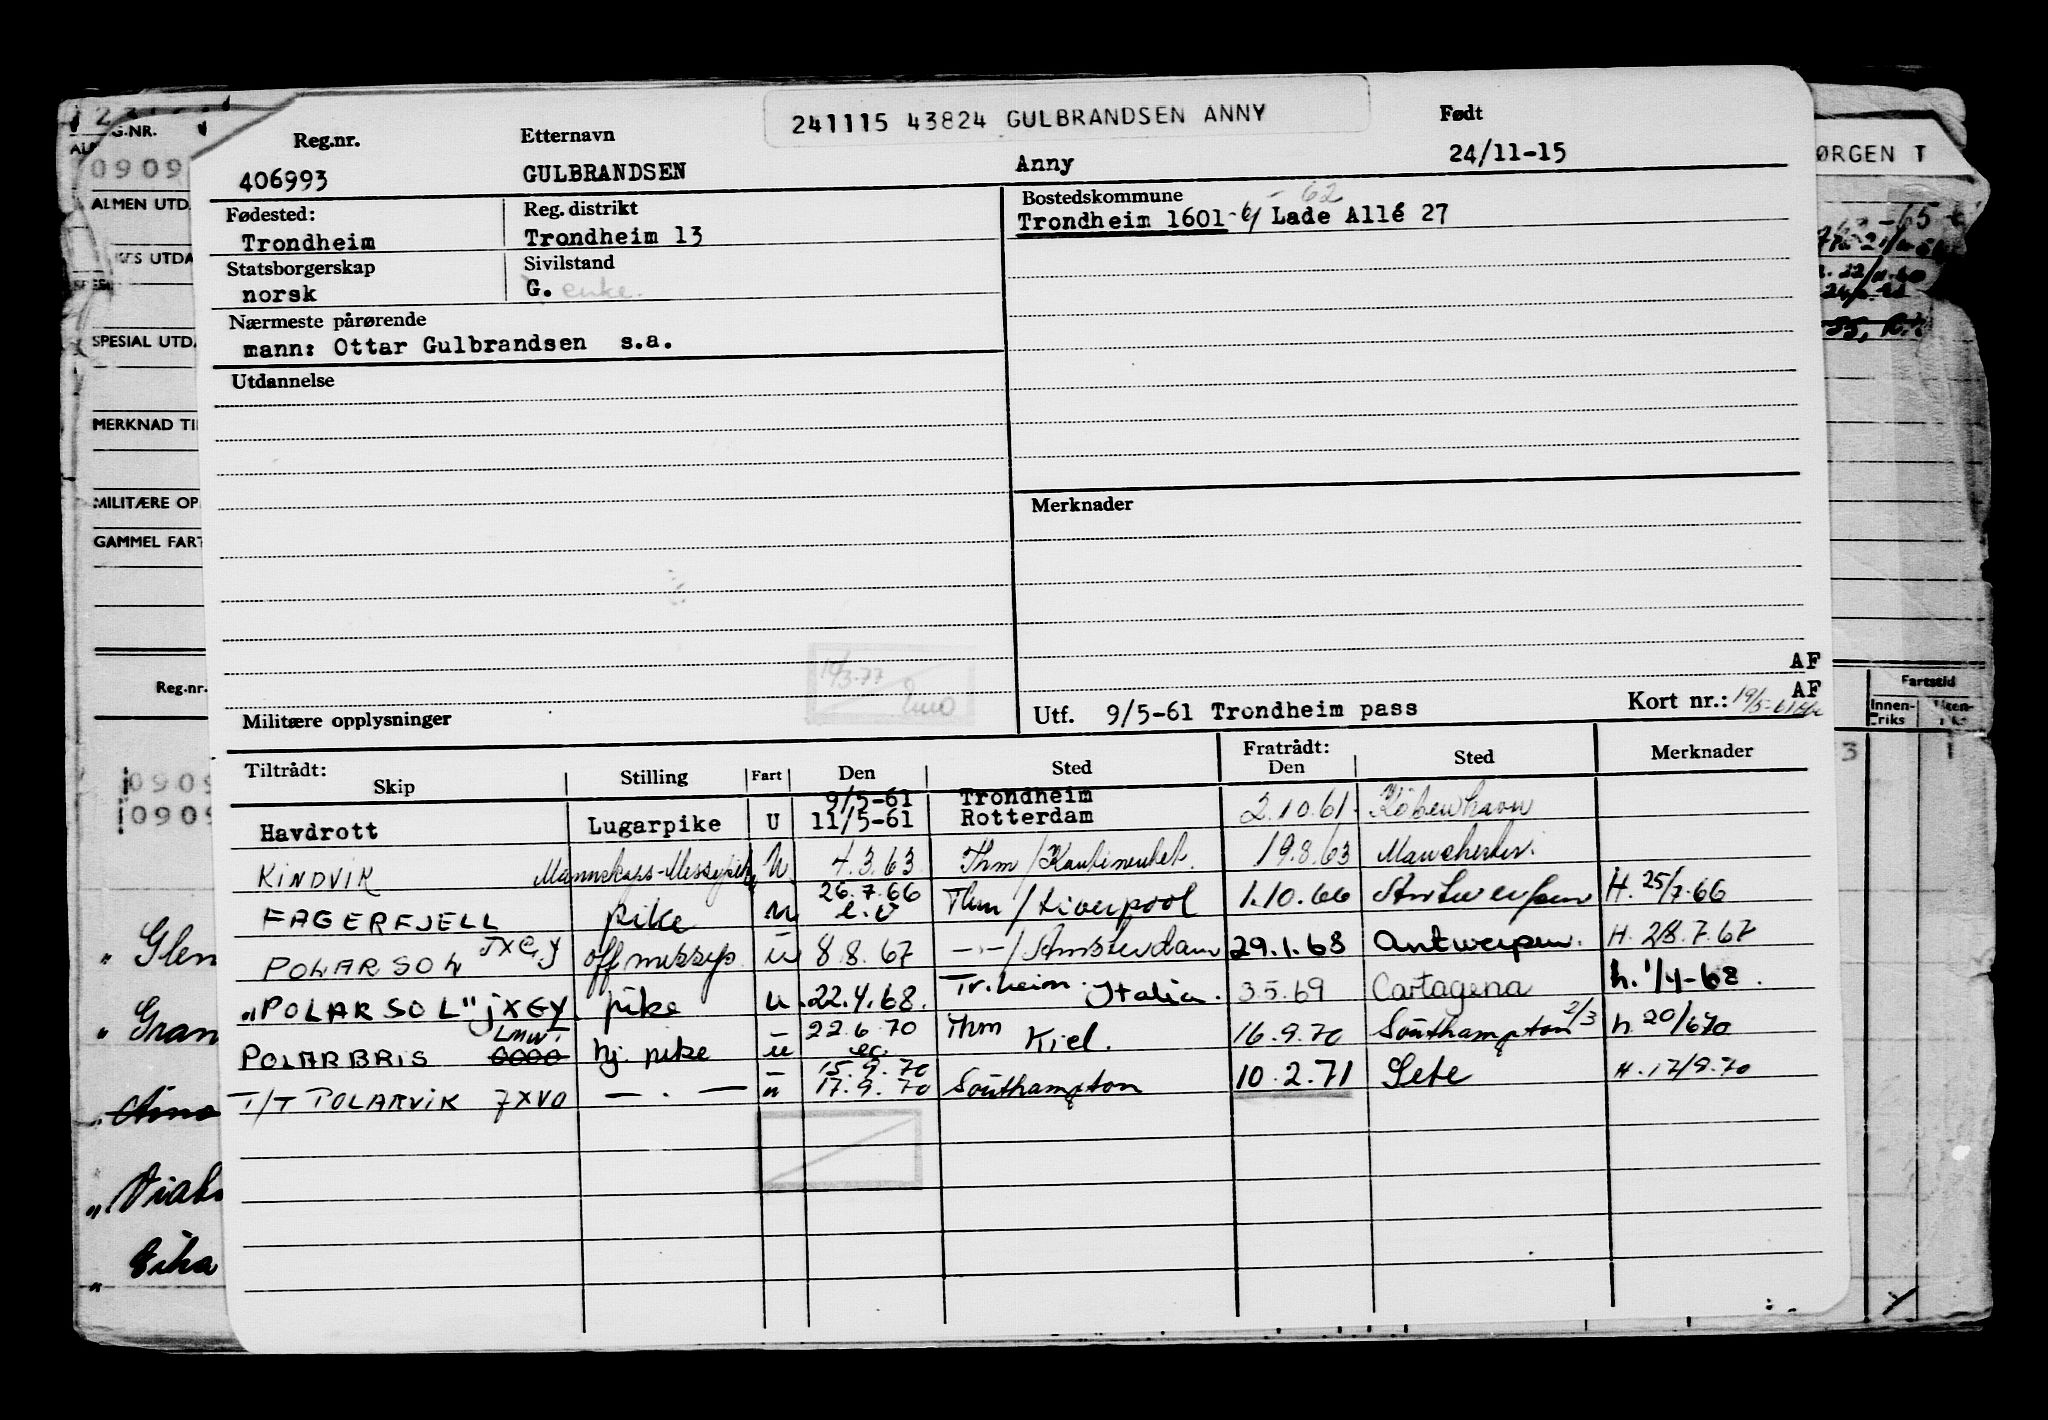 241115 43824 GULBRANDSEN ANNY
Reg.nr. Etternavn Født
406993 GULBRANDSEN Anny 24/11-15
Fødested: Reg. distrikt Bostedskommune - 62
Trondheim Trondheim 13 Trondheim 1601 - 61 Lade Allé 27
Statsborgerskap Sivilstand
norsk G. enke.
Nærmeste pårørende
mann: Ottar Gulbrandsen s.a.
Utdannelse
Merknader
AF
AF
Militære opplysninger Utf. 9/5-61 Trondheim pass Kort nr.:
Tiltrådt: Fratrådt:
Skip Stilling Fart Den Sted Den Sted Merknader
9/5-61 Trondheim
Havdrott Lugarpike U 11/5-61 Rotterdam 2.10.61. København
KINDVIK Mannskaps-Messepike U 4.3.63 Thm / 19.8.63 Manchester.
FAGERFJELL pike u 26.7.66 Thm / Liverpool 1.10.66 Antwerpen H. 25/7.66
POLARSOL JXGY off messep. u 8.8.67 -"- / Amsterdam 29.1.68 Antwerpen. H. 28.7.67
"POLARSOL" jXGY pike u. 22.4.68. Tr.heim. Italia. 3.5.69 Cartagena h. 1/4-68.
POLARBRIS LMWI hj. pike u 22.6.70 Thm Kiel. 16.9.70 Southampton 2/3 h 20/6 70
15.9.70
T/T POLARVIK JXVO — . — u 17.9.70 Southampton 10.2.71 Sete H. 17/9.70
G.NR.
0909
ALMEN UTDA
SPESIAL UTDA
MERKNAD TI
MILITÆRE OP
GAMMEL FART
Reg.nr.
0909
0909
" Glen
" Gran
ØRGEN T
Fartstid
Innen-
riks
3 1